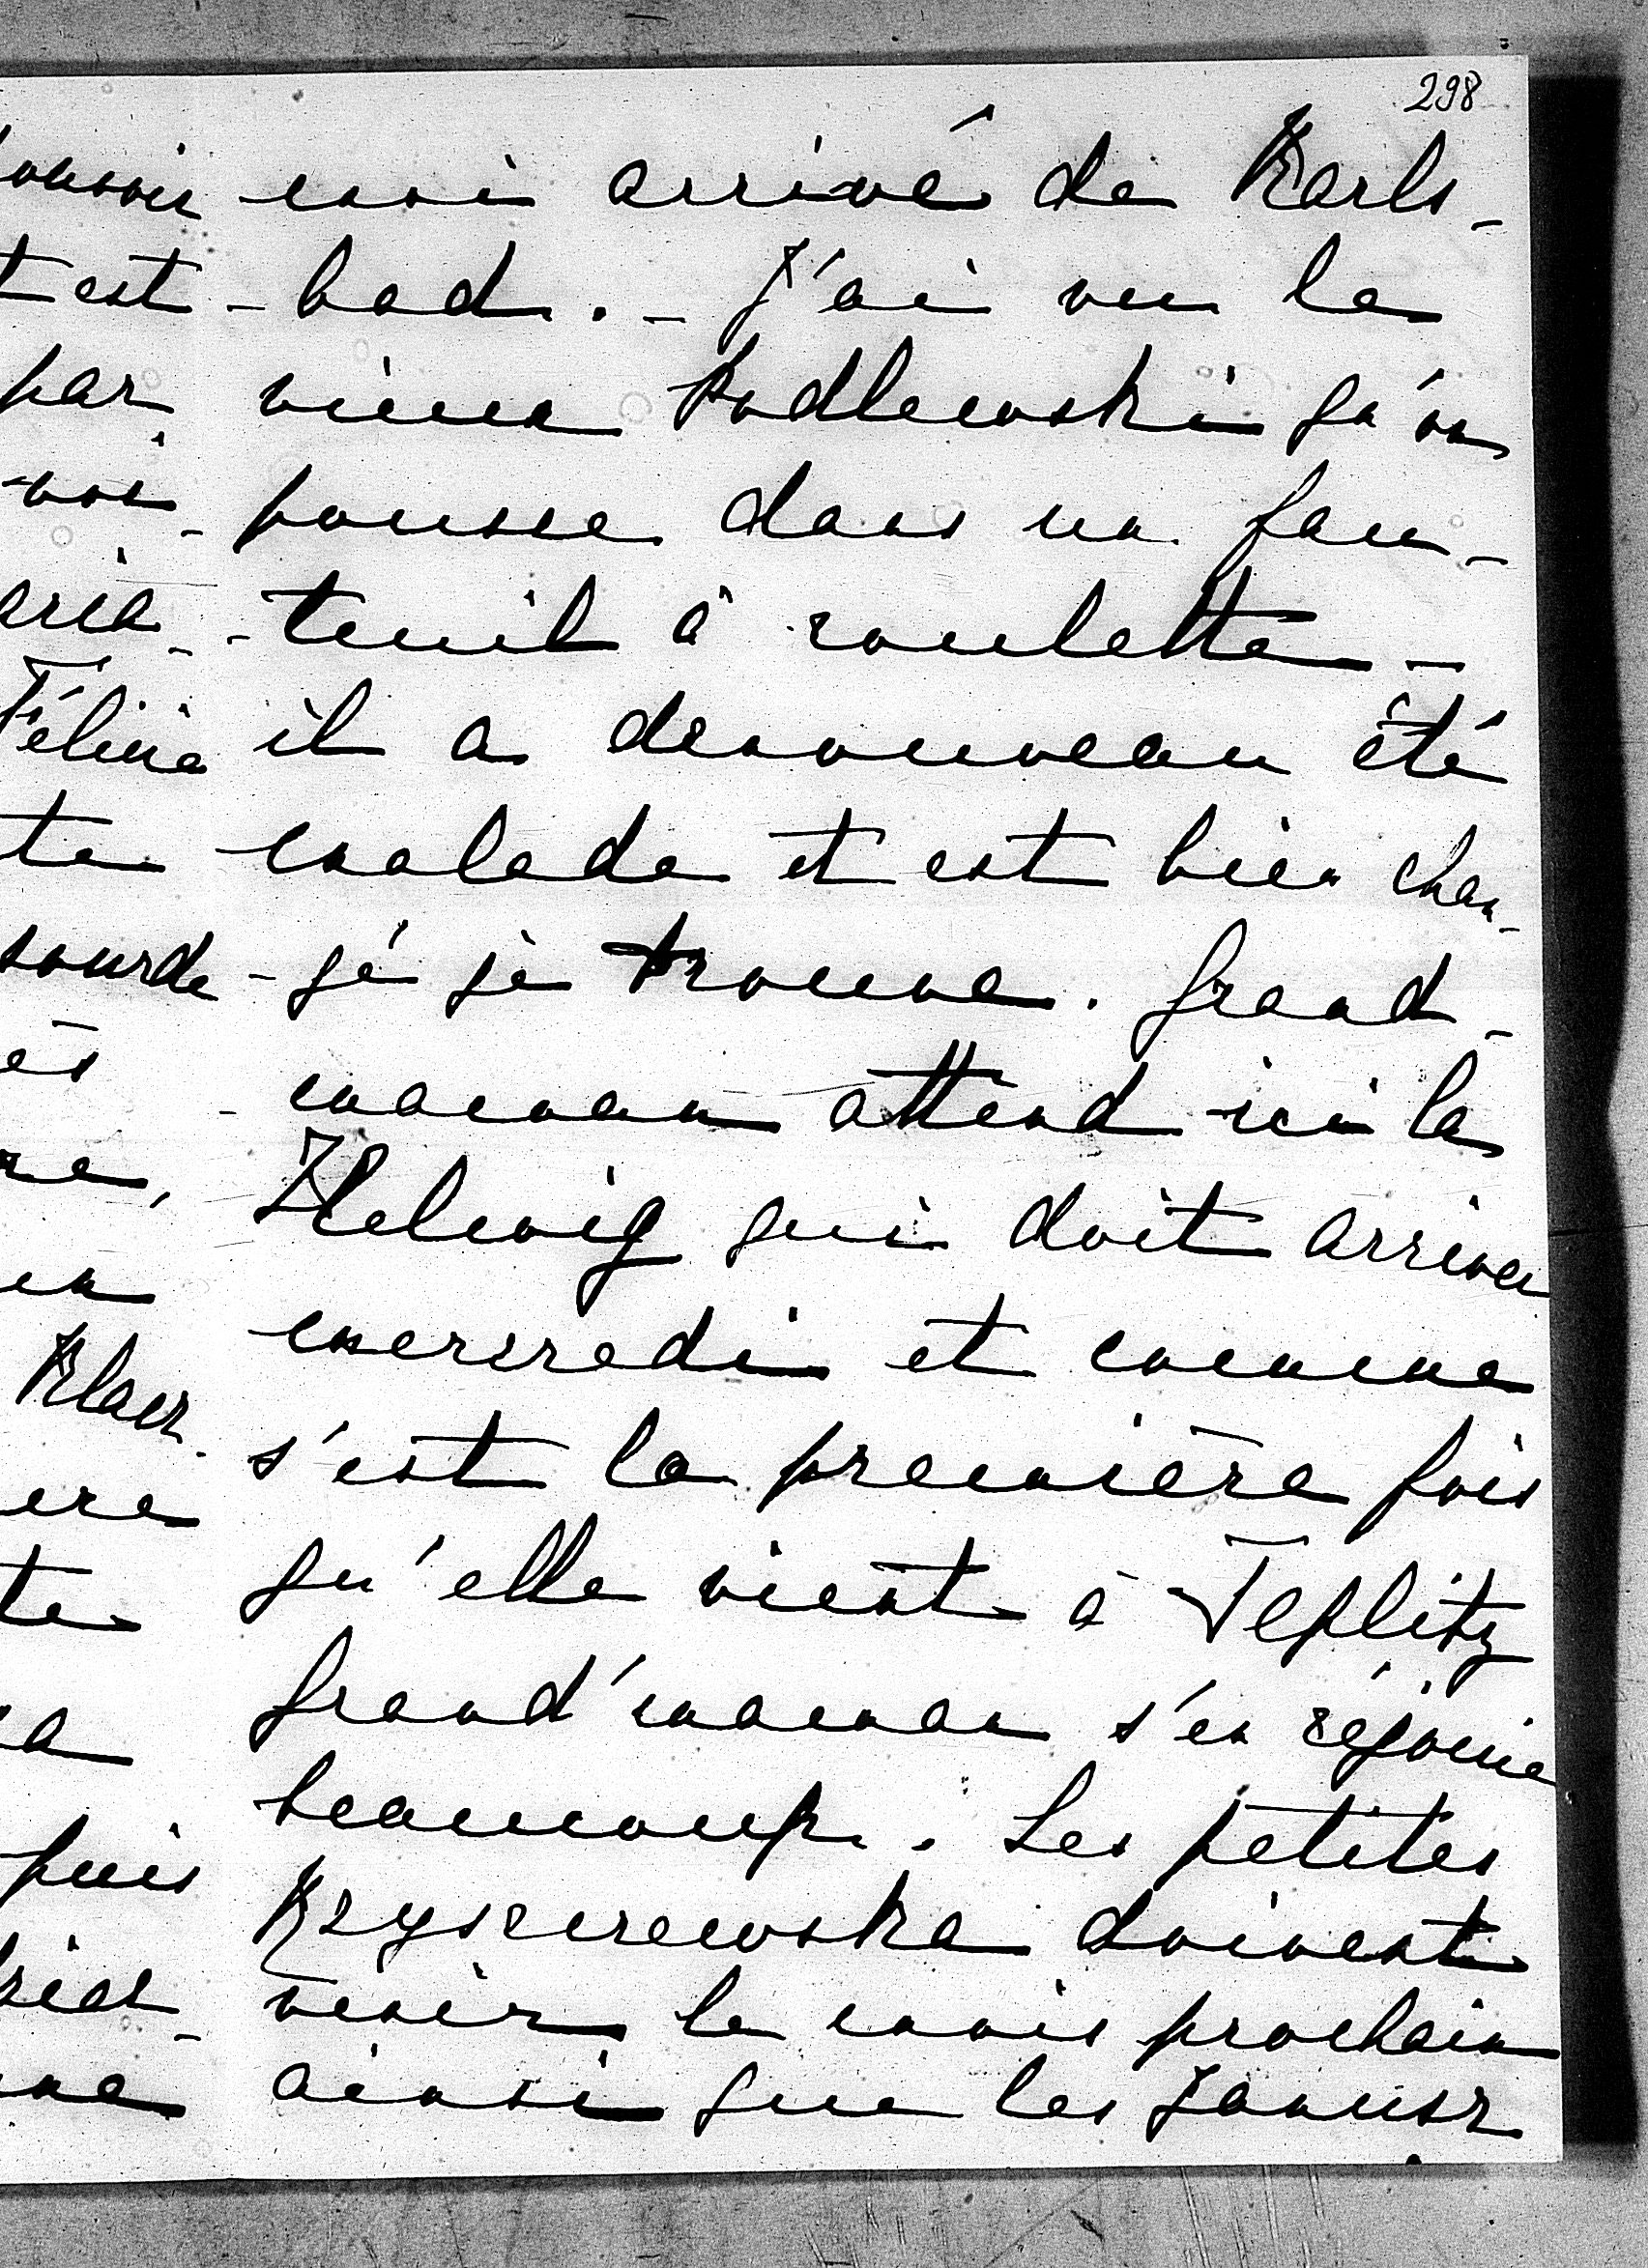 298
moi arrivé de Karls-
-bad. - J'ai vu le
vieux Podlewski qu'on
pousse dans un fau-
-teuil à roulette -
il a denouveau été
malade et est bien chan-
-gé je trouve. Grand-
-maman attend ici la
Helwig qui doit arriver
mercredi et comme
s'est la première fois
qu'elle vient à Teplitz
Grand'maman s'en réjouie
beaucoup. Les petites
Kryszczewska doivent
venir le mois prochain
ainsi que les Janusz
est
par
Félicie
te
sourde
te
puis